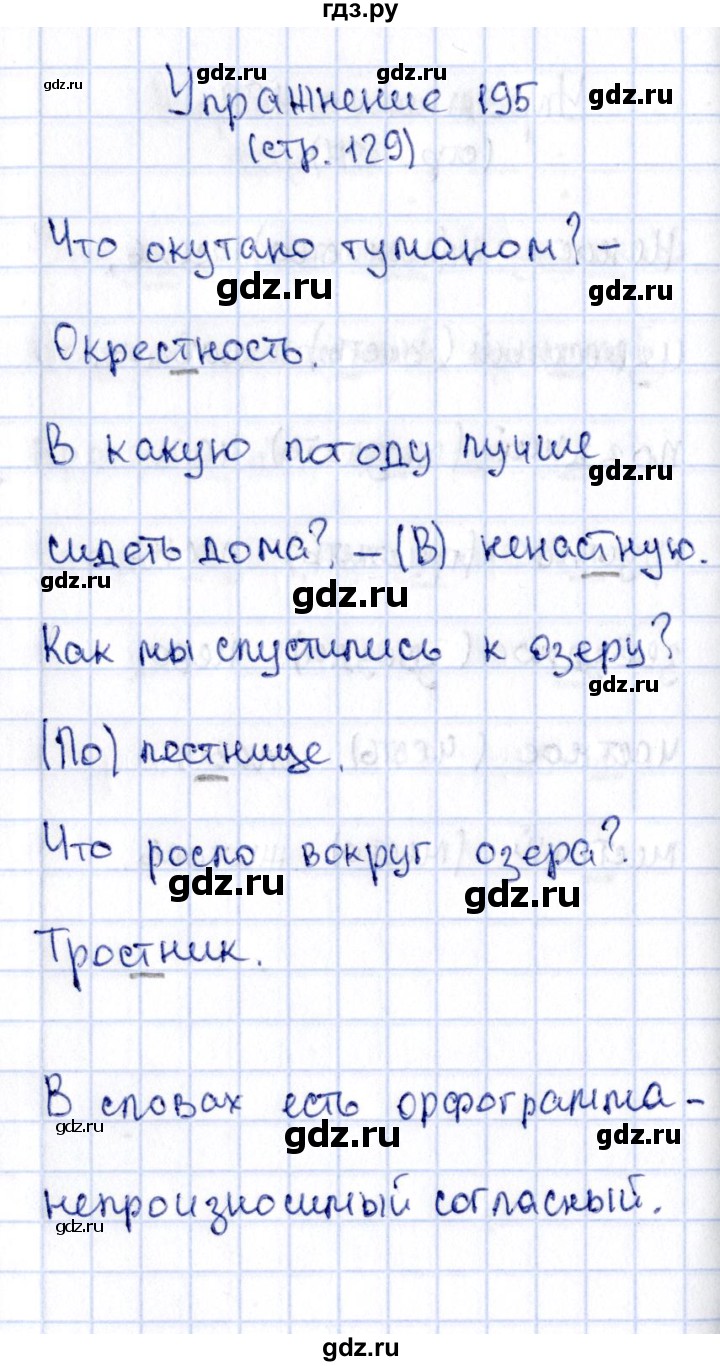 гдз.ру
gdz.ru gdz.ru gdz.ru gdz.ru
Упражнение 195
(стр. 129)
Что окутано туманом? –
gdz.ru gdz.ru
Окрестность.
В какую погоду лучше
gdz.ru
сидеть дома? – (В) ненастную.
gdz.ru gdz.ru
Как мы спустились к озеру?
gdz.ru
(По) лестнице.
Что росло вокруг озера?
gdz.ru gdz.ru
Тростник.
В словах есть орфограмма –
gdz.ru gdz.ru gdz.ru
непроизносимый согласный.
gdz.ru
gdz.ru